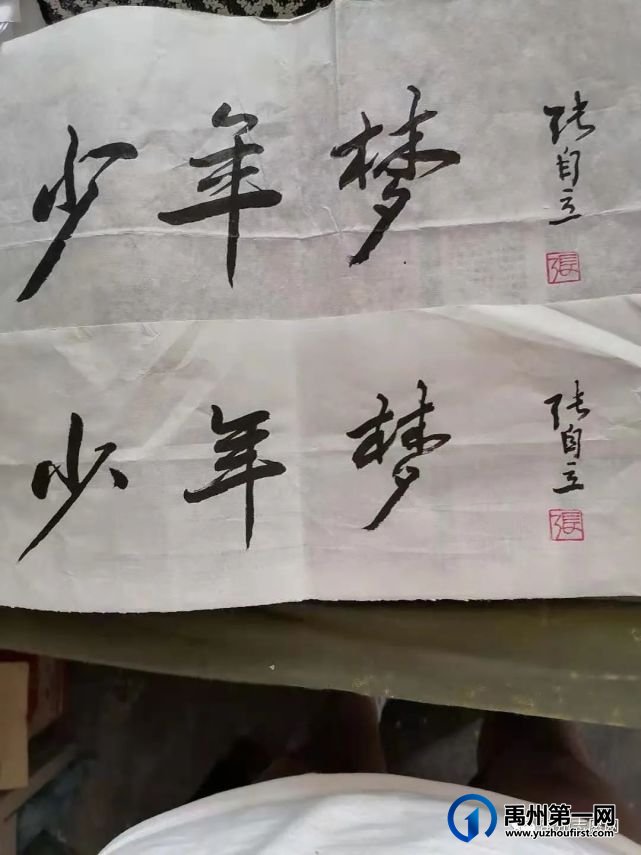 少年梦
张自立
張
少年梦
张自立
張
禹州第一网
www.yuzhoufirst.com